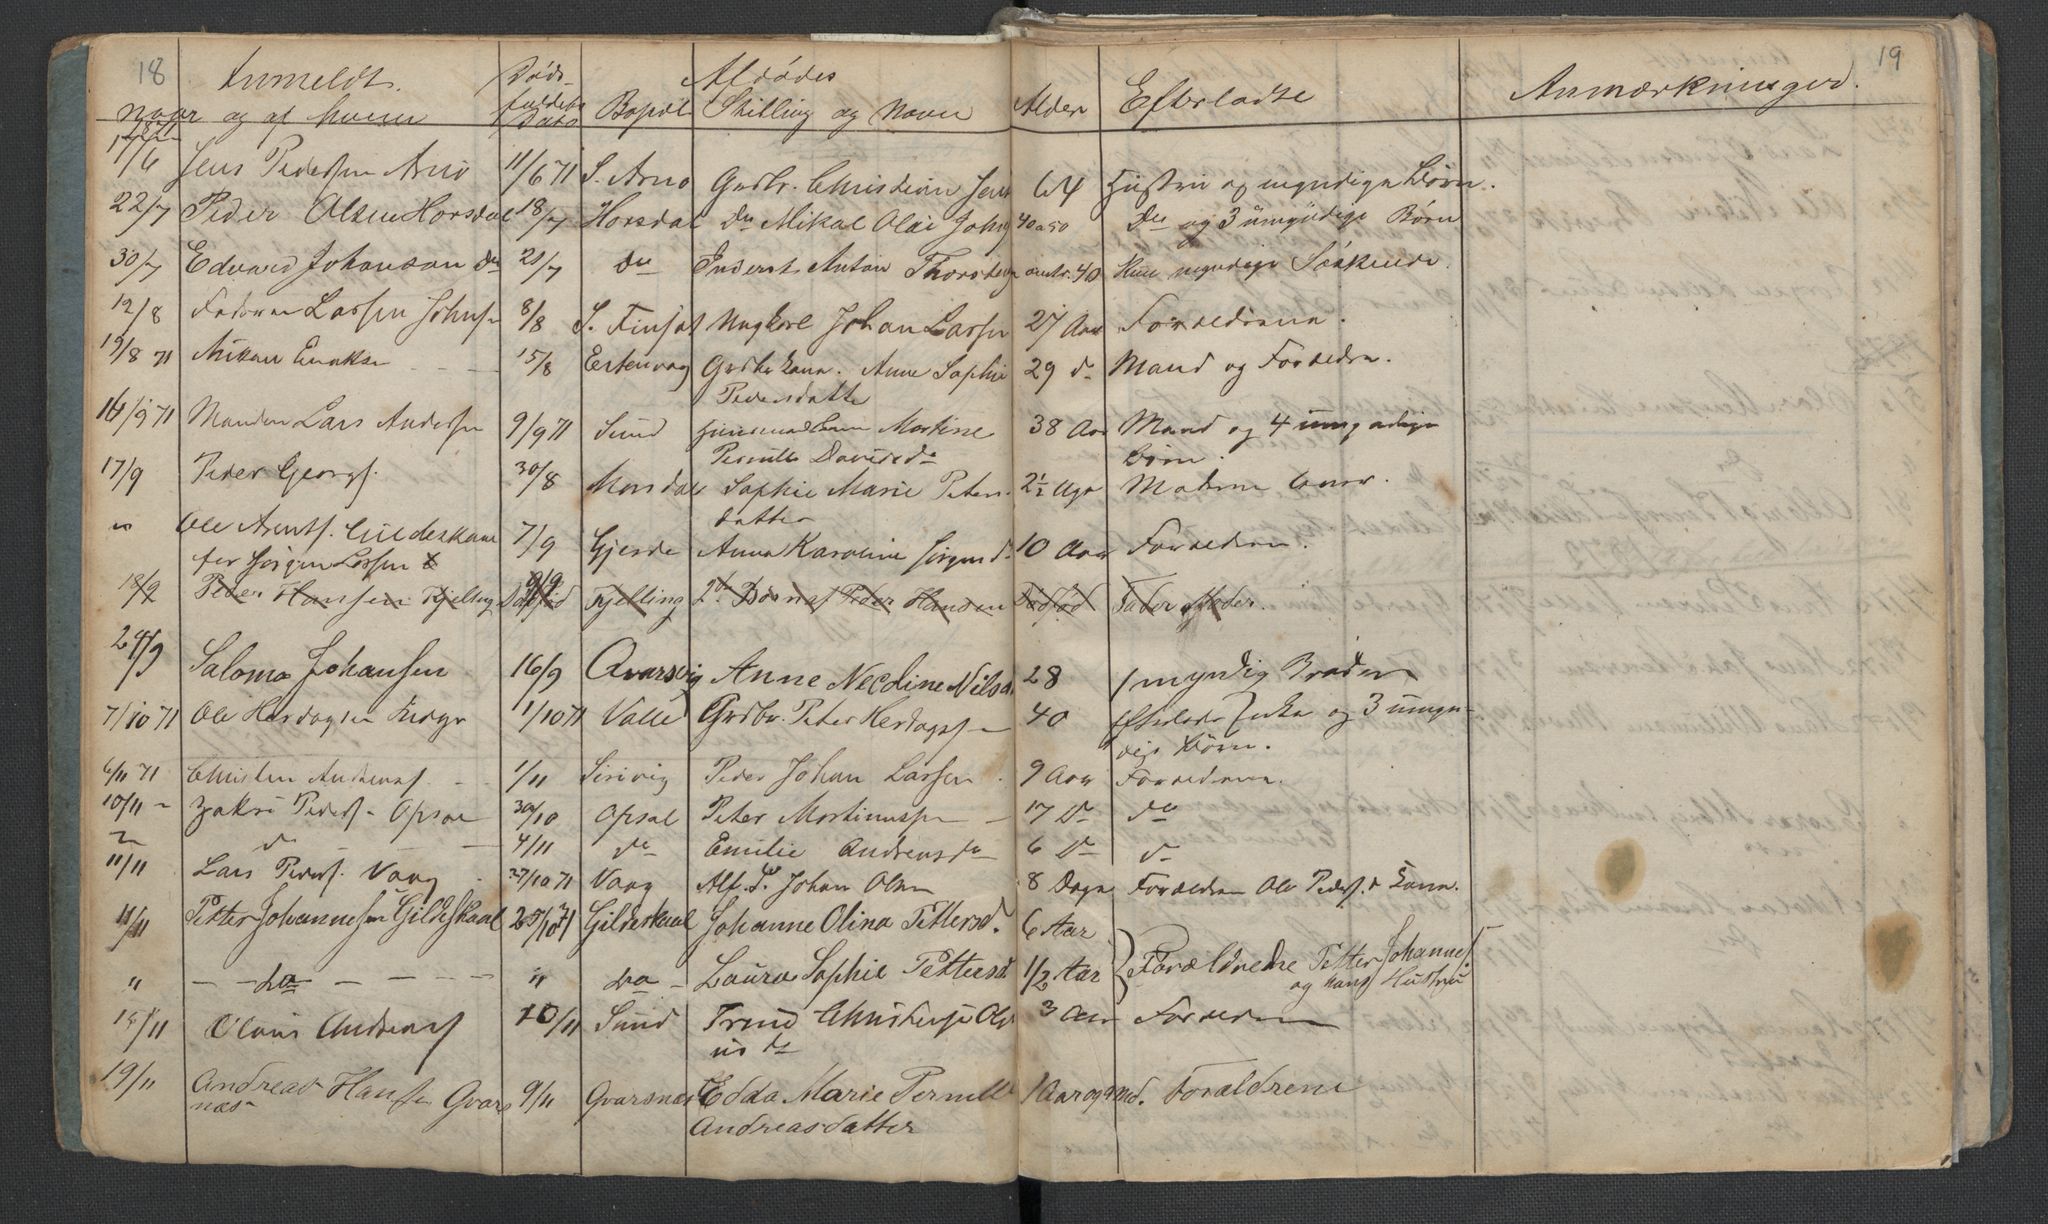 18 Anmeldt. Døds- Afdødes 19
naar og af hvem faldets Dato Bopæl Stilling og Navn Alder Efterladte Anmærkninger.
17/6 Jens Pedersen Arnø 11/6 71 S. Arnø Grdbr. Christian Jens 64 Hustru og myndige Børn.
22/7 Peder Olsen Horsdal 18/7 Horsdal Do Mikal Olai Johns 40 a 50 Do og 3 umyndige Børn
30/7 Edvard Johansen Do 21/7 Do Inderst Anton Thorsten omtr. 40 Kun myndige Søskende.
12/8 Faderen Lars Johns 8/8 S. Finset Ungkarl Johan Larsen 27 Aar Forældrene.
19/8 71 Mikal Enoksen 15/8 Estenvag Grdbr kone. Anne Sophie 29 Do Mand og Forældre.
Pedersdatter
14/9 71 Manden Lars Andersen 9/9 71 Sund Martine 38 Aar Mand og 4 umyndige
Pernille Davidsdr Børn.
17/9 Peder Georgs. 30/8 Morsdal Sophie Marie Peters 2½ Uge Moderen
datter
" Ole Arents. Gildeskaal 7/9 Gjerde Anna Karoline Jørgensd. 10 Aar Forældrene.
for Jørgen Larsen
18/9 Peder Hansen Kjelling Dødfød 9/9 Kjelling Peder Hansen Dødfød Fader Moder.
24/9 Saloma Johansen 16/9 Qvarsvig Anne Necoline Nilsd 28 1 myndig Broder
7/10 71 Ole Hertagsen 1/10 71 Valle Grdbr. Peter Hertagsen 40 Efterlader Enke og 3 umyn-
dige Børn.
6/11 71 Christen Andreas. 1/11 Sirivig Peder Johan Larsen 9 Aar Forældrene.
10/11 - Zakri Peders. Opsal 30/10 Opsal Peter Mortinussen 17 Do do
" do 4/11 do Emilie Andreasdr 6 Do do
11/11 Lars Peders. Vaag 27/10 71 Vaag Alf. L. Johan Olsen 8 Dage Forældrene Ole Peders. & Kone.
11/11 Petter Johannesen Gildeskaal 25/10 71 Gildeskaal Johanne Olina Pettersd. 6 Aar
" — — Do — — — — " Do - Laura Sophie Pettersd 1/2 Aar } Forældrene Petter Johannes.
og hans Hustru
15/11 Olaus Andreas 10/11 Sund Trine Christense Ola 3 Aar Forældrene
us dr
19/11 Andreas Hansen Gvars 9/11 Gvarsnæs Edda Marie Pernille 1 Aar og 9 Md. Forældrene
næs Andreasdatter